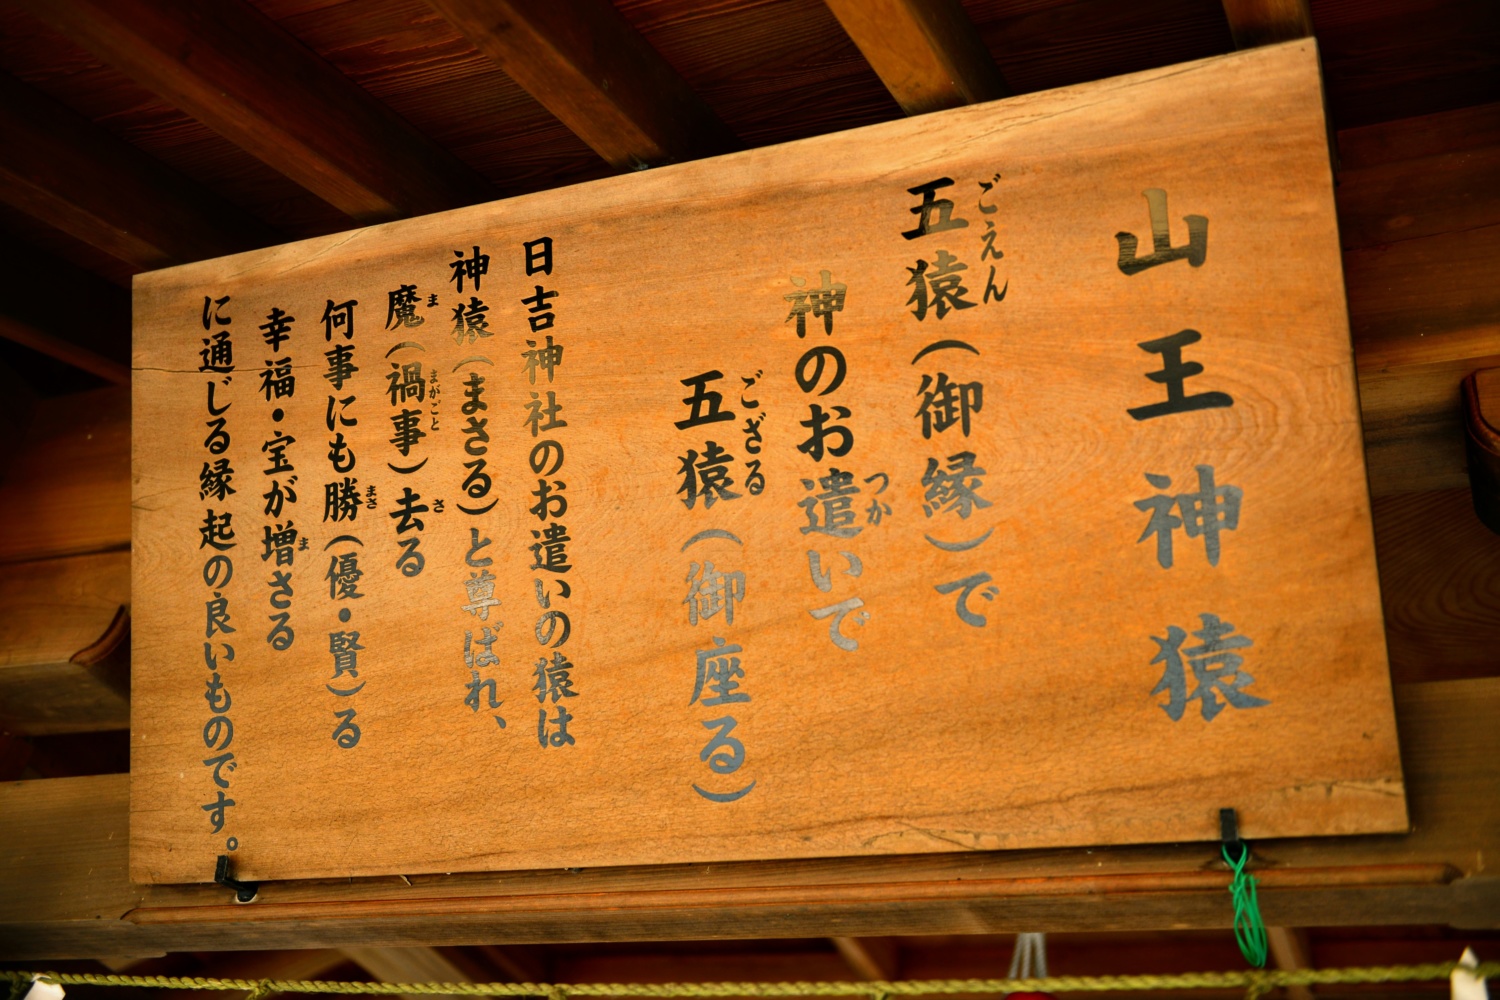 山王神猿
五猿(御縁)で
ごえん
神のお遣いで
つか
五猿(御座る)
ござる
日吉神社のお遣いの猿は
神猿(まさる)と尊ばれ、
魔(禍事)去る
ま まがごと さ
何事にも勝(優・賢)る
まさ
幸福・宝が増さる
ま
に通じる縁起の良いものです。